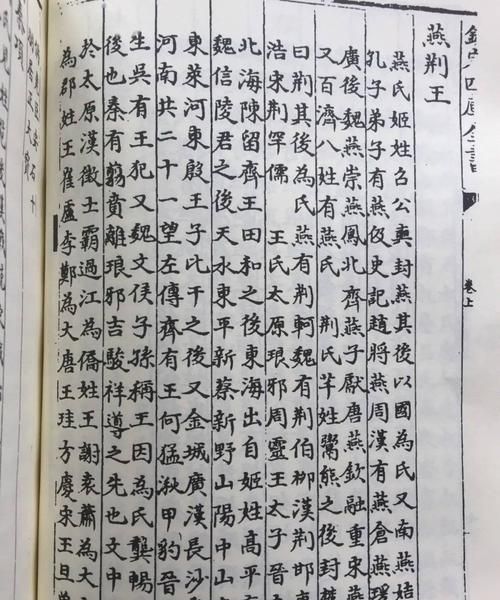 欽定四庫全書
卷上
燕荆王
燕氏姬姓召公奭封燕其後以國為氏又南燕姞
孔子弟子有燕伋史記趙將燕周漢有燕倉燕瑳
廣後魏燕崇燕鳳北齊燕子厭唐燕欽融重宋燕
又百濟八姓有燕氏 荆氏芊姓鬻熊之後封
曰荆其後為氏燕有荆軻魏有荆伯栁漢荆邯東
浩宋荆罕儒 王氏太原琅邪周靈王太子晉
北海陳留齊王田和之後東海出自姬姓高平
魏信陵君之後天水東平新蔡新野山陽中山
東萊河東殷王子比干之後又金城廣漢長沙
河南共二十一望左傳齊有王何猛湫甲豹晉
生吳有王犯又魏文侯子孫稱王因為氏龔暢
後也秦有翦賁離琅邪吉駿祥導之先也文中
於太原漢徵士霸過江為僑姓王謝袁蕭為大
為郡姓王崔盧李鄭為大唐王珪方慶宋王旦